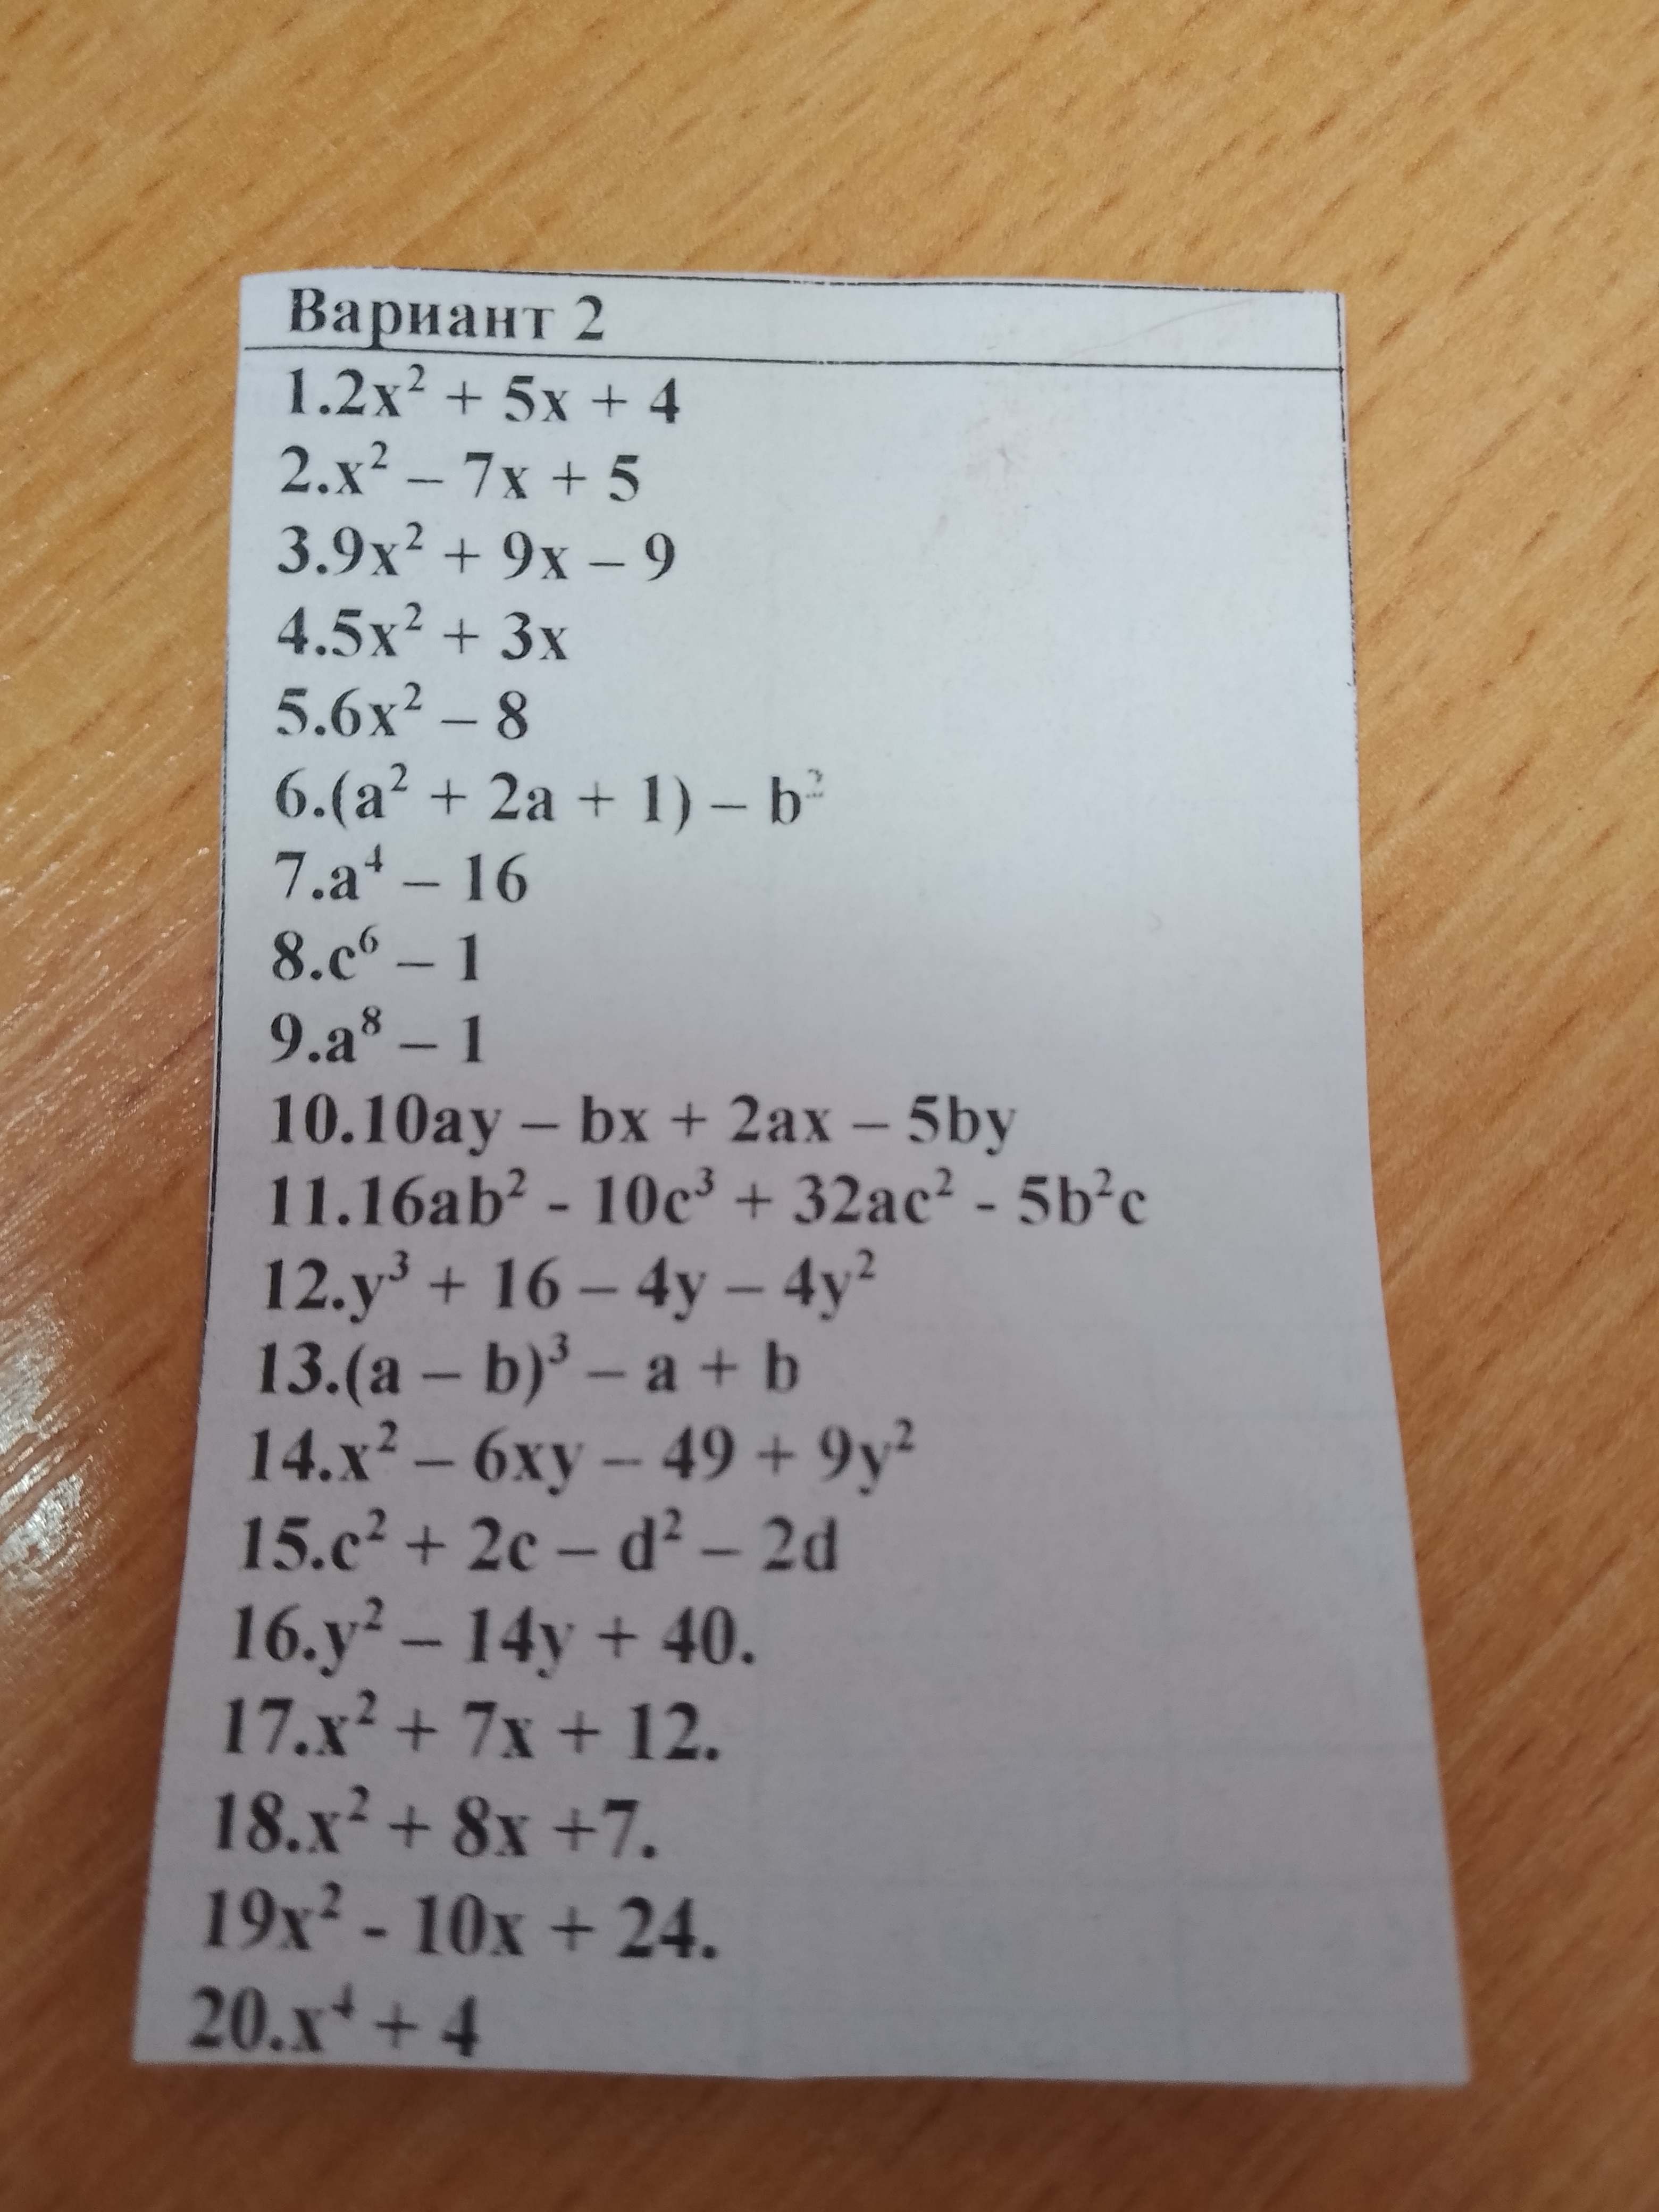 Вариант 2
1.2x² + 5x + 4
2.x² – 7x + 5
3.9x² + 9x – 9
4.5x² + 3x
5.6x² – 8
6.(a² + 2a + 1) – b²
7.a⁴ – 16
8.c⁶ – 1
9.a⁸ – 1
10.10ay – bx + 2ax – 5by
11.16ab² - 10c³ + 32ac² - 5b²c
12.y³ + 16 – 4y – 4y²
13.(a – b)³ – a + b
14.x² – 6xy – 49 + 9y²
15.c² + 2c – d² – 2d
16.y² – 14y + 40.
17.x² + 7x + 12.
18.x² + 8x +7.
19x² - 10x + 24.
20.x⁴ + 4